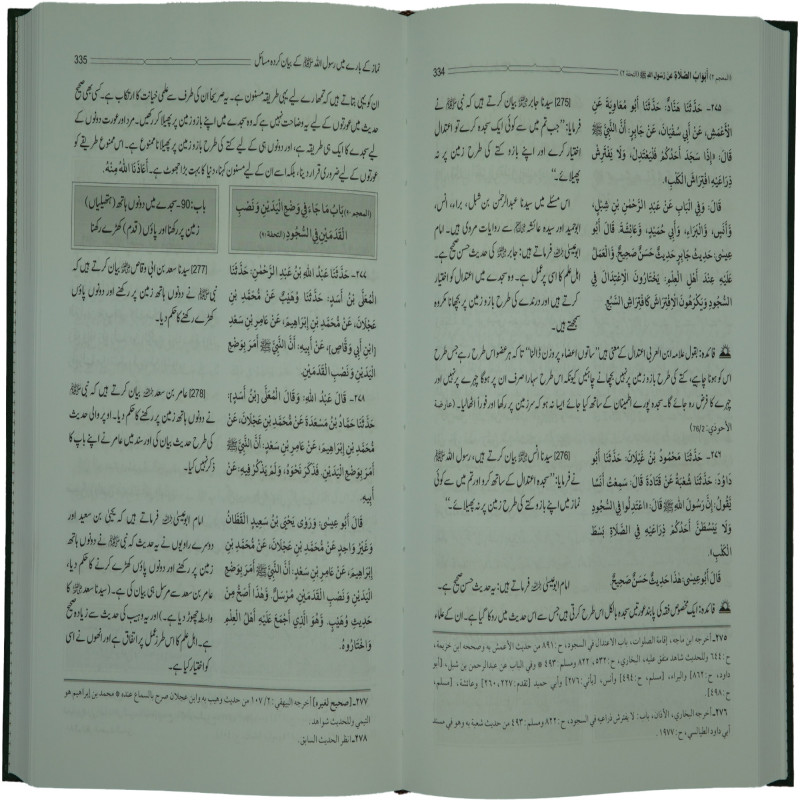 (المعجم ٢) أبواب الصلاة عن رسول الله ﷺ (التحفة ٢)
334
٢٧٥- حَدَّثَنَا هَنَّادٌ: حَدَّثَنَا أَبُو مُعَاوِيَةَ عَنِ
الْأَعْمَشِ، عَنْ أَبِي سُفْيَانَ، عَنْ جَابِرٍ: أَنَّ النَّبِيَّ ﷺ
قَالَ: «إِذَا سَجَدَ أَحَدُكُمْ فَلْيَعْتَدِلْ، وَلَا يَفْتَرِشْ
ذِرَاعَيْهِ افْتِرَاشَ الْكَلْبِ».
قَالَ: وَفِي الْبَابِ عَنْ عَبْدِ الرَّحْمٰنِ بْنِ شِبْلٍ،
وَأَنَسٍ، وَالْبَرَاءِ، وَأَبِي حُمَيْدٍ، وَعَائِشَةَ. قَالَ أَبُو
عِيسَى: حَدِيثُ جَابِرٍ حَدِيثٌ حَسَنٌ صَحِيحٌ وَالْعَمَلُ
عَلَيْهِ عِنْدَ أَهْلِ الْعِلْمِ: يَخْتَارُونَ الْاِعْتِدَالَ فِي
السُّجُودِ وَيَكْرَهُونَ الْاِفْتِرَاشَ كَافْتِرَاشِ السَّبُعِ.
[275] سیدنا جابر بیان کرتے ہیں کہ نبی ﷺ نے
فرمایا: ”جب تم میں سے کوئی ایک سجدہ کرے تو اعتدال
اختیار کرے اور اپنے بازو کتے کی طرح زمین پر نہ
پھیلائے۔“
اس مسئلے میں سیدنا عبدالرحمٰن بن شبل، براء، انس،
ابوحمید اور سیدہ عائشہ سے روایات مروی ہیں۔ امام
ابوعیسیٰ فرماتے ہیں: جابر کی حدیث حسن صحیح ہے۔
اہل علم کا اسی پر عمل ہے۔ وہ سجدے میں اعتدال اختیار
کرتے ہیں اور درندے کی طرح بازو زمین پر بچھانا مکروہ
سمجھتے ہیں۔
فائدہ: بقول علامہ ابن العربی اعتدال کے معنی ہیں ”ساتوں اعضاء پر وزن ڈالنا“ تاکہ ہر عضو اس طرح رہے جس طرح
اس کو ہونا چاہیے، کتے کی طرح بازو زمین پر نہیں بچھانے چاہئیں کیونکہ اس طرح سہارا صرف ان پر ہوگا چہرے پر نہیں اور
چہرے کا فرض رہ جائے گا۔ سجدہ پورے اطمینان کے ساتھ کیا جائے ایسا نہ ہو کہ سر زمین پر رکھا اور فوراً اٹھا لیا۔ (عارضة
الأحوذي: 76/2)
٢٧٦- حَدَّثَنَا مَحْمُودُ بْنُ غَيْلَانَ: حَدَّثَنَا أَبُو
دَاوُدَ: حَدَّثَنَا شُعْبَةُ عَنْ قَتَادَةَ قَالَ: سَمِعْتُ أَنَسًا
يَقُولُ: إِنَّ رَسُولَ اللهِ ﷺ قَالَ: «اعْتَدِلُوا فِي السُّجُودِ
وَلَا يَبْسُطَنَّ أَحَدُكُمْ ذِرَاعَيْهِ فِي الصَّلَاةِ بَسْطَ
الْكَلْبِ».
قَالَ أَبُو عِيسَى: هٰذَا حَدِيثٌ حَسَنٌ صَحِيحٌ.
[276] سیدنا انس بیان کرتے ہیں، رسول اللہ ﷺ
نے فرمایا: ”سجدہ اعتدال کے ساتھ کرو اور تم میں سے کوئی
نماز میں اپنے بازو کتے کی طرح زمین پر نہ پھیلائے۔“
امام ابوعیسیٰ فرماتے ہیں: یہ حدیث حسن صحیح ہے۔
فائدہ: ایک مخصوص فقہ کی پابند عورتیں سجدہ بالکل اس طرح کرتی ہیں جس سے اس حدیث میں روکا گیا ہے۔ ان کے علماء
٢٧٥- أخرجه ابن ماجه، إقامة الصلوات، باب الاعتدال في السجود، ح: ٨٩١ من حديث الأعمش به وصححه ابن خزيمة،
ح: ٦٤٤ وللحديث شاهد متفق عليه، البخاري، ح: ٥٣٢، ٨٢٢ ومسلم: ٤٩٣ * وفي الباب عن عبدالرحمن بن شبل، [أبو
داود، ح: ٨٦٢] والبراء، [مسلم، ح: ٤٩٤] وأنس، [يأتي: ٢٧٦] وأبي حميد [تقدم: ٢٦٠، ٢٢٧] وعائشة، [مسلم،
ح: ٤٩٨].
٢٧٦- أخرجه البخاري، الأذان، باب: لا يفترش ذراعيه في السجود، ح: ٨٢٢ ومسلم: ٤٩٣ من حديث شعبة به وهو في مسند
أبي داود الطيالسي، ح: ١٩٧٧.
نماز کے بارے میں رسول اللہ ﷺ کے بیان کردہ مسائل
335
ان کو یہی بتاتے ہیں کہ تمھارے لیے یہی طریقہ مسنون ہے۔ یہ صریحاً ان کی طرف سے علمی خیانت کا ارتکاب ہے۔ کسی بھی صحیح
حدیث میں عورتوں کے لیے یہ وضاحت نہیں ہے کہ وہ سجدے میں اپنے بازو زمین پر پھیلا کر رکھیں۔ مرد اور عورت دونوں کے
لیے سجدے کا ایک ہی طریقہ ہے، اور دونوں ہی کے لیے کتے کی طرح بازو زمین پر پھیلانا ممنوع ہے۔ اس ممنوع طریقے کو
عورتوں کے لیے ضروری قرار دینا، بلکہ اسے ان کے لیے مسنون کہنا، دنیا کا بہت بڑا جھوٹ ہے۔ أَعَاذَنَا اللهُ مِنْهُ.
(المعجم ٩٠) بَابُ مَا جَاءَ فِي وَضْعِ الْيَدَيْنِ وَنَصْبِ
الْقَدَمَيْنِ فِي السُّجُودِ (التحفة ٩٠)
باب: 90- سجدے میں دونوں ہاتھ (ہتھیلیاں)
زمین پر رکھنا اور پاؤں (قدم) کھڑے رکھنا
٢٧٧- حَدَّثَنَا عَبْدُ اللهِ بْنُ عَبْدِ الرَّحْمٰنِ: حَدَّثَنَا
الْمُعَلَّى بْنُ أَسَدٍ: حَدَّثَنَا وُهَيْبٌ عَنْ مُحَمَّدِ بْنِ
عَجْلَانَ، عَنْ مُحَمَّدِ بْنِ إِبْرَاهِيمَ، عَنْ عَامِرِ بْنِ سَعْدِ
[ابْنِ أَبِي وَقَّاصٍ]، عَنْ أَبِيهِ، أَنَّ النَّبِيَّ ﷺ أَمَرَ بِوَضْعِ
الْيَدَيْنِ وَنَصْبِ الْقَدَمَيْنِ.
[277] سیدنا سعد بن ابی وقاص بیان کرتے ہیں کہ
نبی ﷺ نے دونوں ہاتھ زمین پر رکھنے اور دونوں پاؤں
کھڑے رکھنے کا حکم دیا۔
٢٧٨- قَالَ عَبْدُ اللهِ: وَقَالَ الْمُعَلَّى [بْنُ أَسَدٍ]:
حَدَّثَنَا حَمَّادُ بْنُ مَسْعَدَةَ عَنْ مُحَمَّدِ بْنِ عَجْلَانَ، عَنْ
مُحَمَّدِ بْنِ إِبْرَاهِيمَ، عَنْ عَامِرِ بْنِ سَعْدٍ: أَنَّ النَّبِيَّ ﷺ
أَمَرَ بِوَضْعِ الْيَدَيْنِ. فَذَكَرَ نَحْوَهُ، وَلَمْ يَذْكُرْ فِيهِ: عَنْ
أَبِيهِ.
[278] عامر بن سعد بیان کرتے ہیں کہ نبی ﷺ
نے دونوں ہاتھ زمین پر رکھنے کا حکم دیا۔ اوپر والی حدیث
کی طرح حدیث بیان کی اور سند میں عامر نے اپنے باپ کا
ذکر نہیں کیا۔
قَالَ أَبُو عِيسَى: وَرَوَى يَحْيَى بْنُ سَعِيدٍ الْقَطَّانُ
وَغَيْرُ وَاحِدٍ عَنْ مُحَمَّدِ بْنِ عَجْلَانَ، عَنْ مُحَمَّدِ بْنِ
إِبْرَاهِيمَ، عَنْ عَامِرِ بْنِ سَعْدٍ: أَنَّ النَّبِيَّ ﷺ أَمَرَ بِوَضْعِ
الْيَدَيْنِ وَنَصْبِ الْقَدَمَيْنِ. مُرْسَلٌ. وَهٰذَا أَصَحُّ مِنْ
حَدِيثِ وُهَيْبٍ. وَهُوَ الَّذِي أَجْمَعَ عَلَيْهِ أَهْلُ الْعِلْمِ
وَاخْتَارُوهُ.
امام ابوعیسیٰ فرماتے ہیں کہ یحییٰ بن سعید اور
دوسرے راویوں نے یہ حدیث کہ نبی ﷺ نے دونوں ہاتھ
زمین پر رکھنے اور دونوں پاؤں کھڑے کرنے کا حکم دیا،
عامر بن سعد سے مرسل ہی بیان کی ہے۔ (سیدنا سعد کا
واسطہ چھوڑ دیا ہے۔) اور یہ وہیب کی حدیث سے زیادہ صحیح
ہے۔ اہل علم کا اس طرز عمل پر اتفاق ہے اور انھوں نے اسی
کو اختیار کیا ہے۔
٢٧٧- [صحيح لغيره] أخرجه البيهقي: ٢/ ١٠٧ من حديث وهيب به وابن عجلان صرح بالسماع عنده * محمد بن إبراهيم هو
التيمي وللحديث شواهد.
٢٧٨- انظر الحديث السابق.